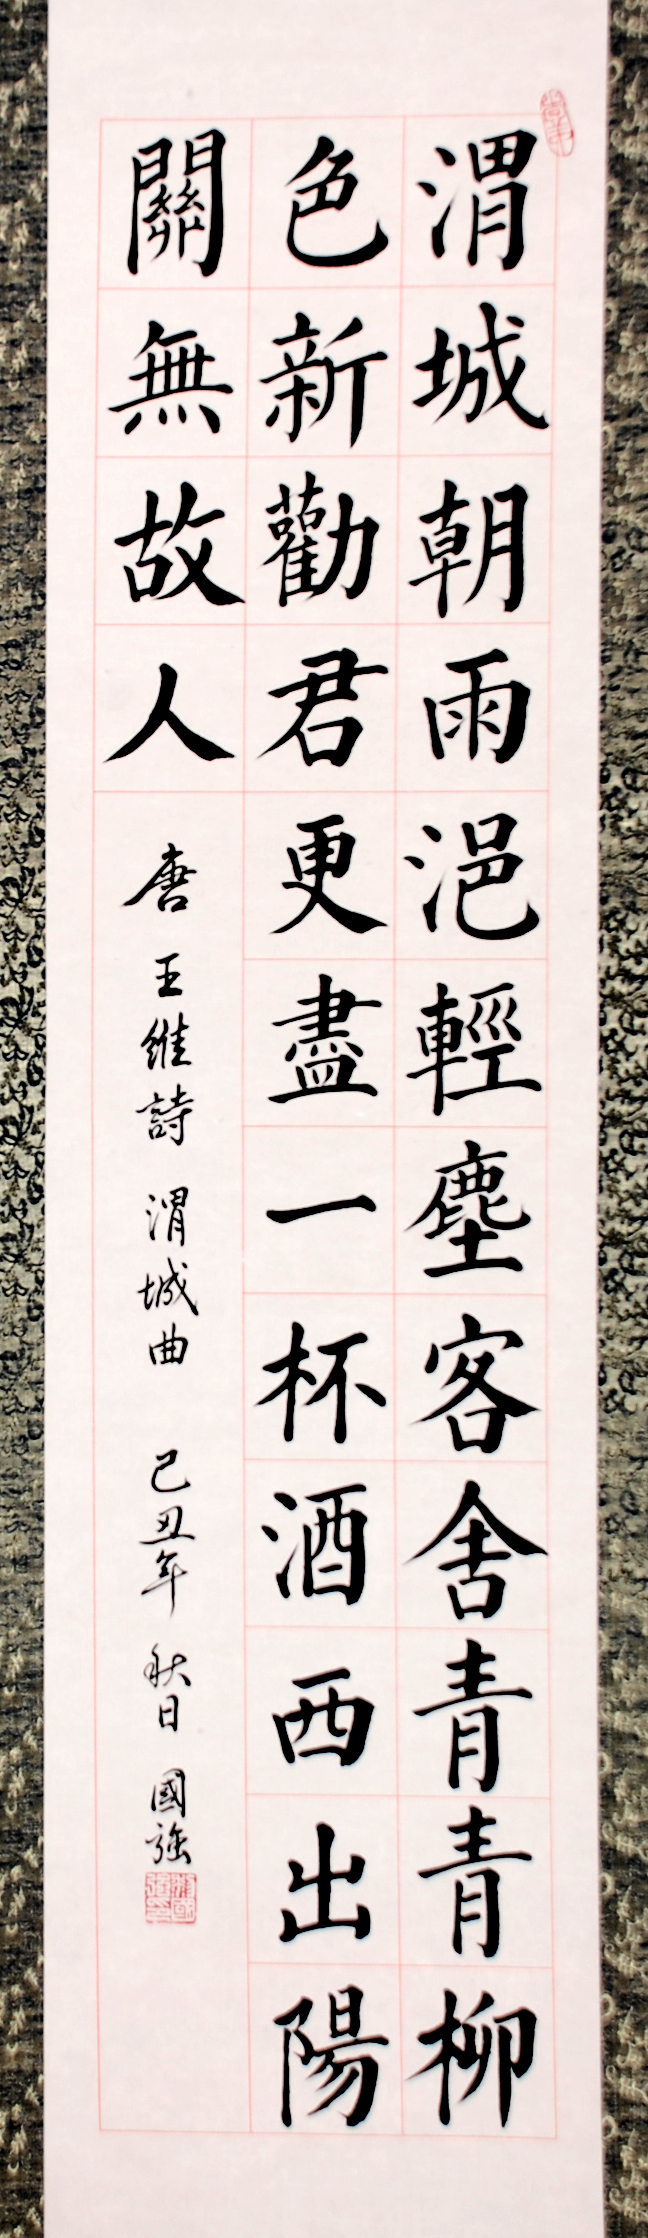 渭城朝雨浥輕塵客舍青青柳
色新勸君更盡一杯酒西出陽
關無故人
唐 王維詩 渭城曲 己丑年 秋日 國強